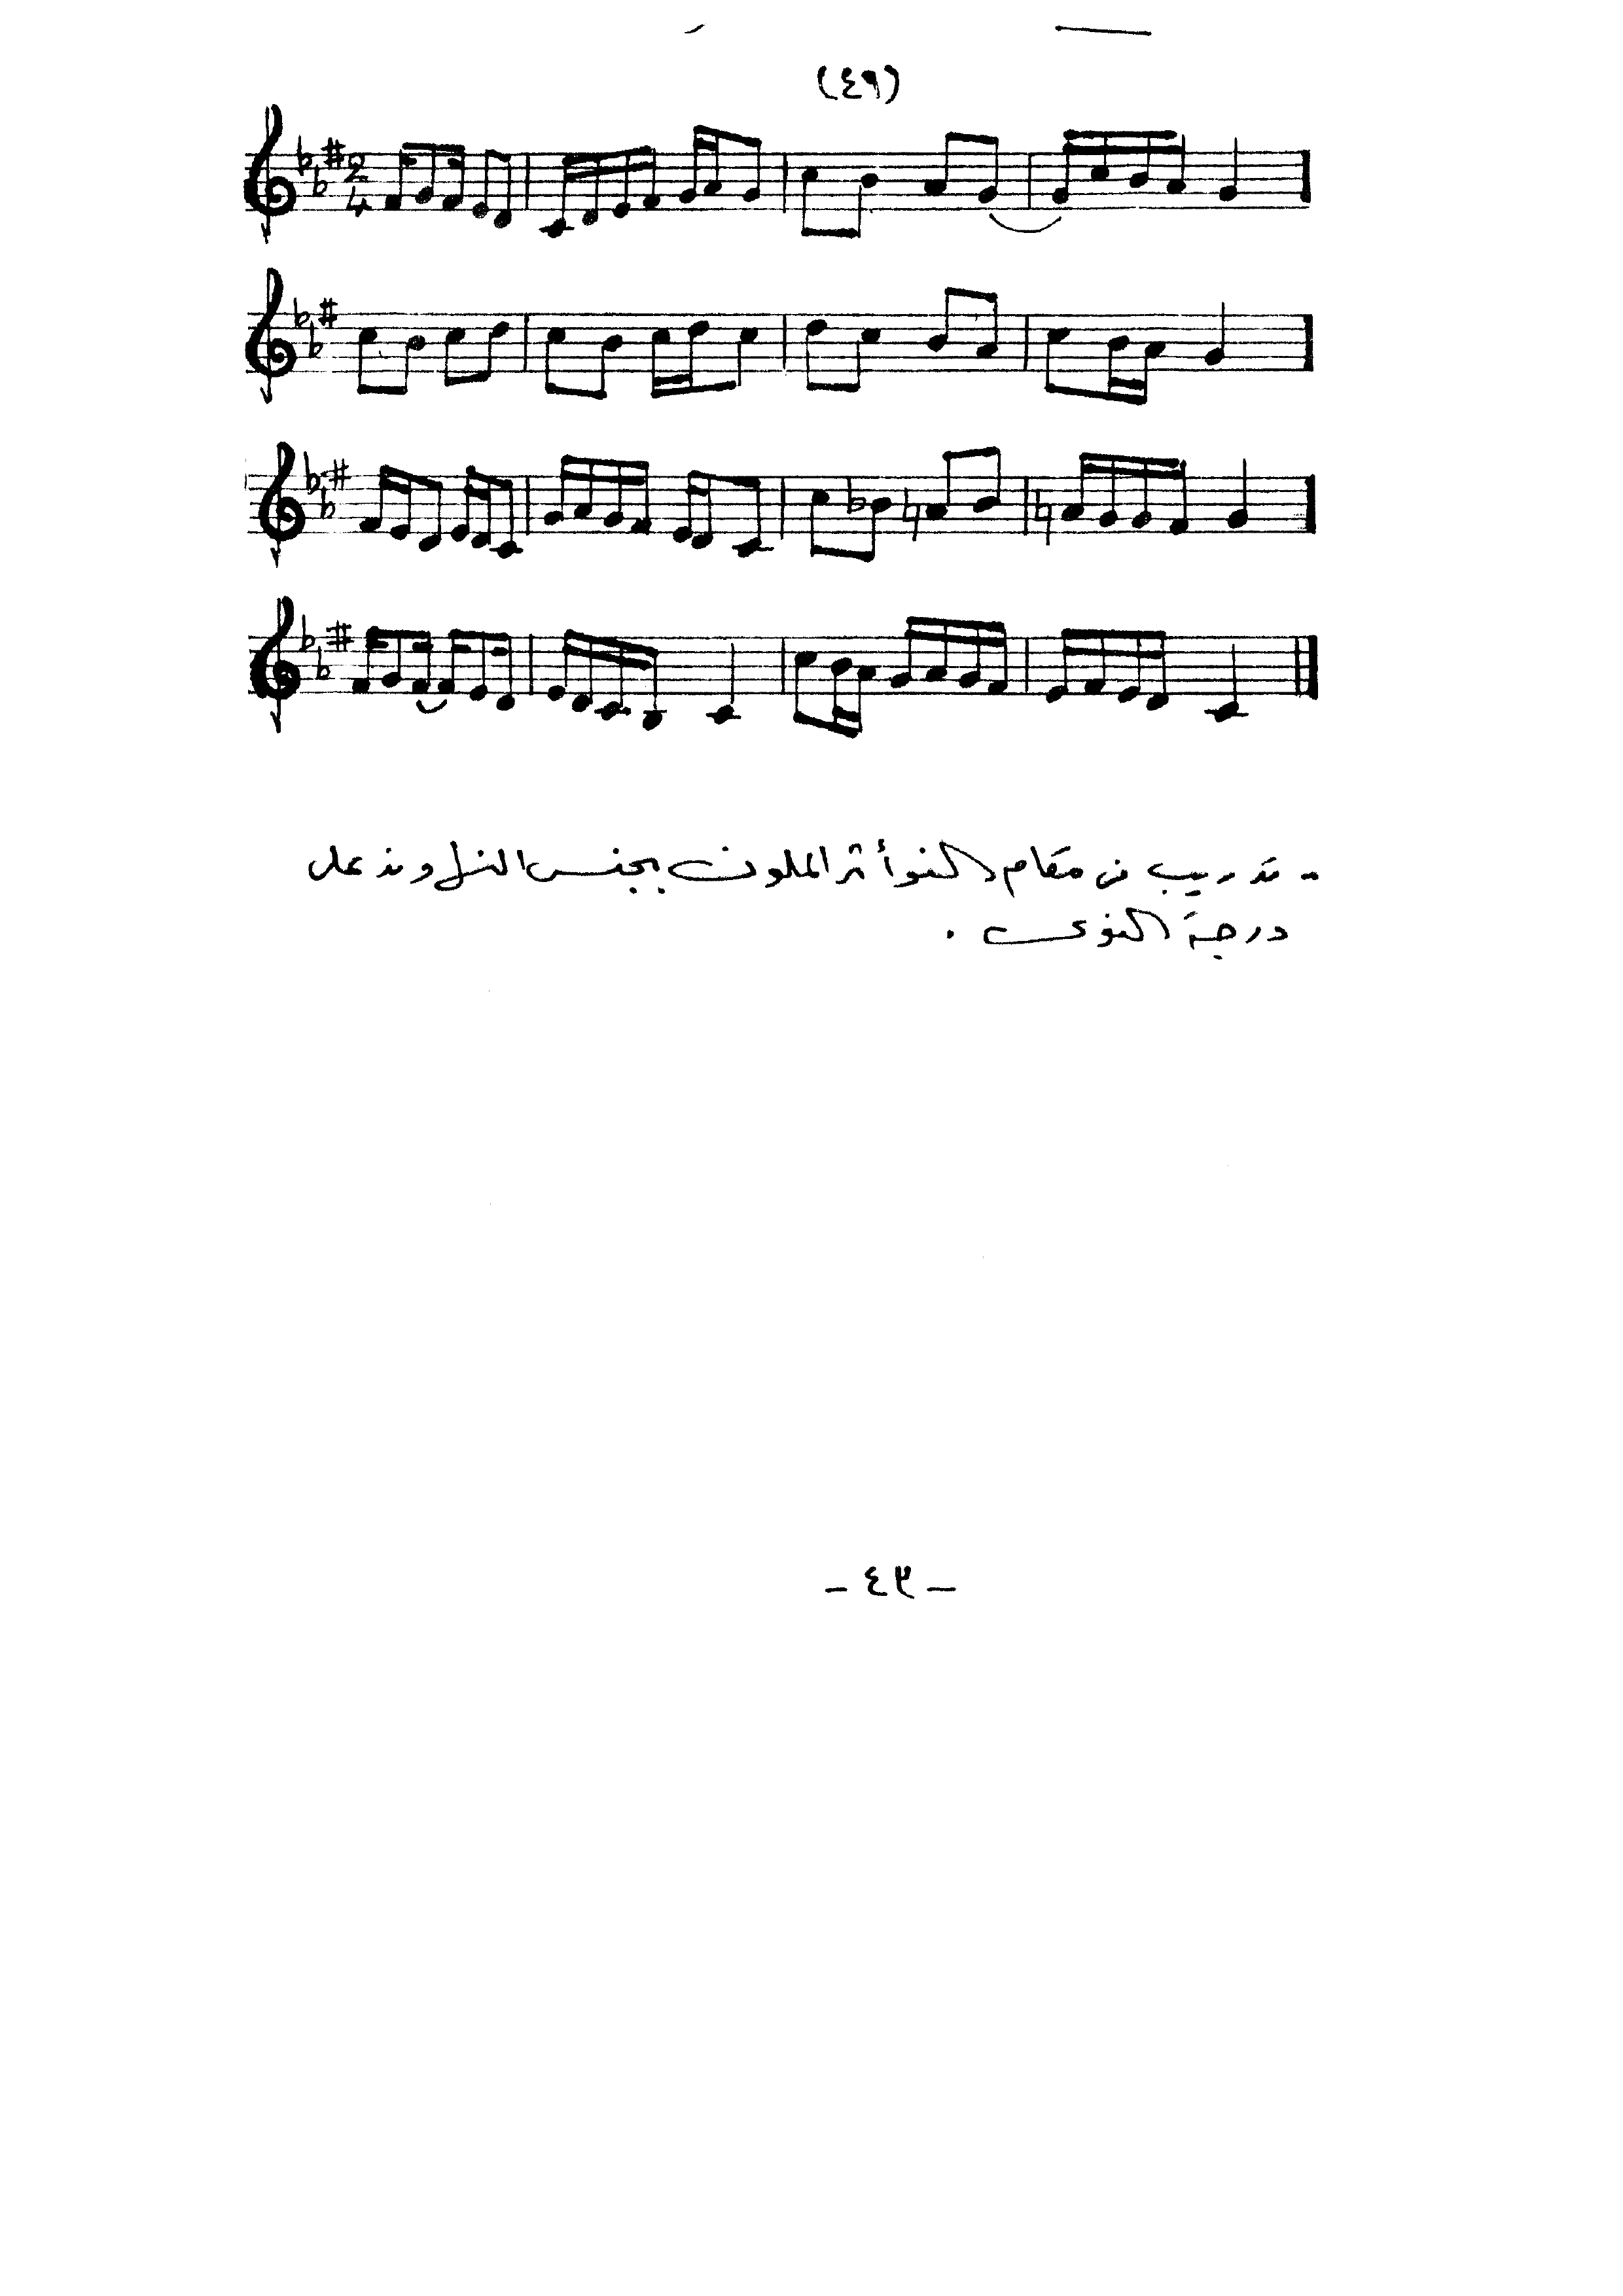 (٤٩)
2
4
- تدريب من مقام النوأثر الملون بجنس النهاوند على
درجة النوى .
- ٤٣ -